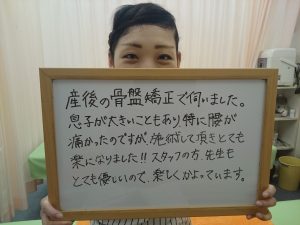 産後の骨盤矯正で伺いました。
息子が大きいこともあり特に腰が
痛かったのですが、施術して頂きとても
楽になりました!!スタッフの方、先生も
とても優しいので、楽しくかよっています。